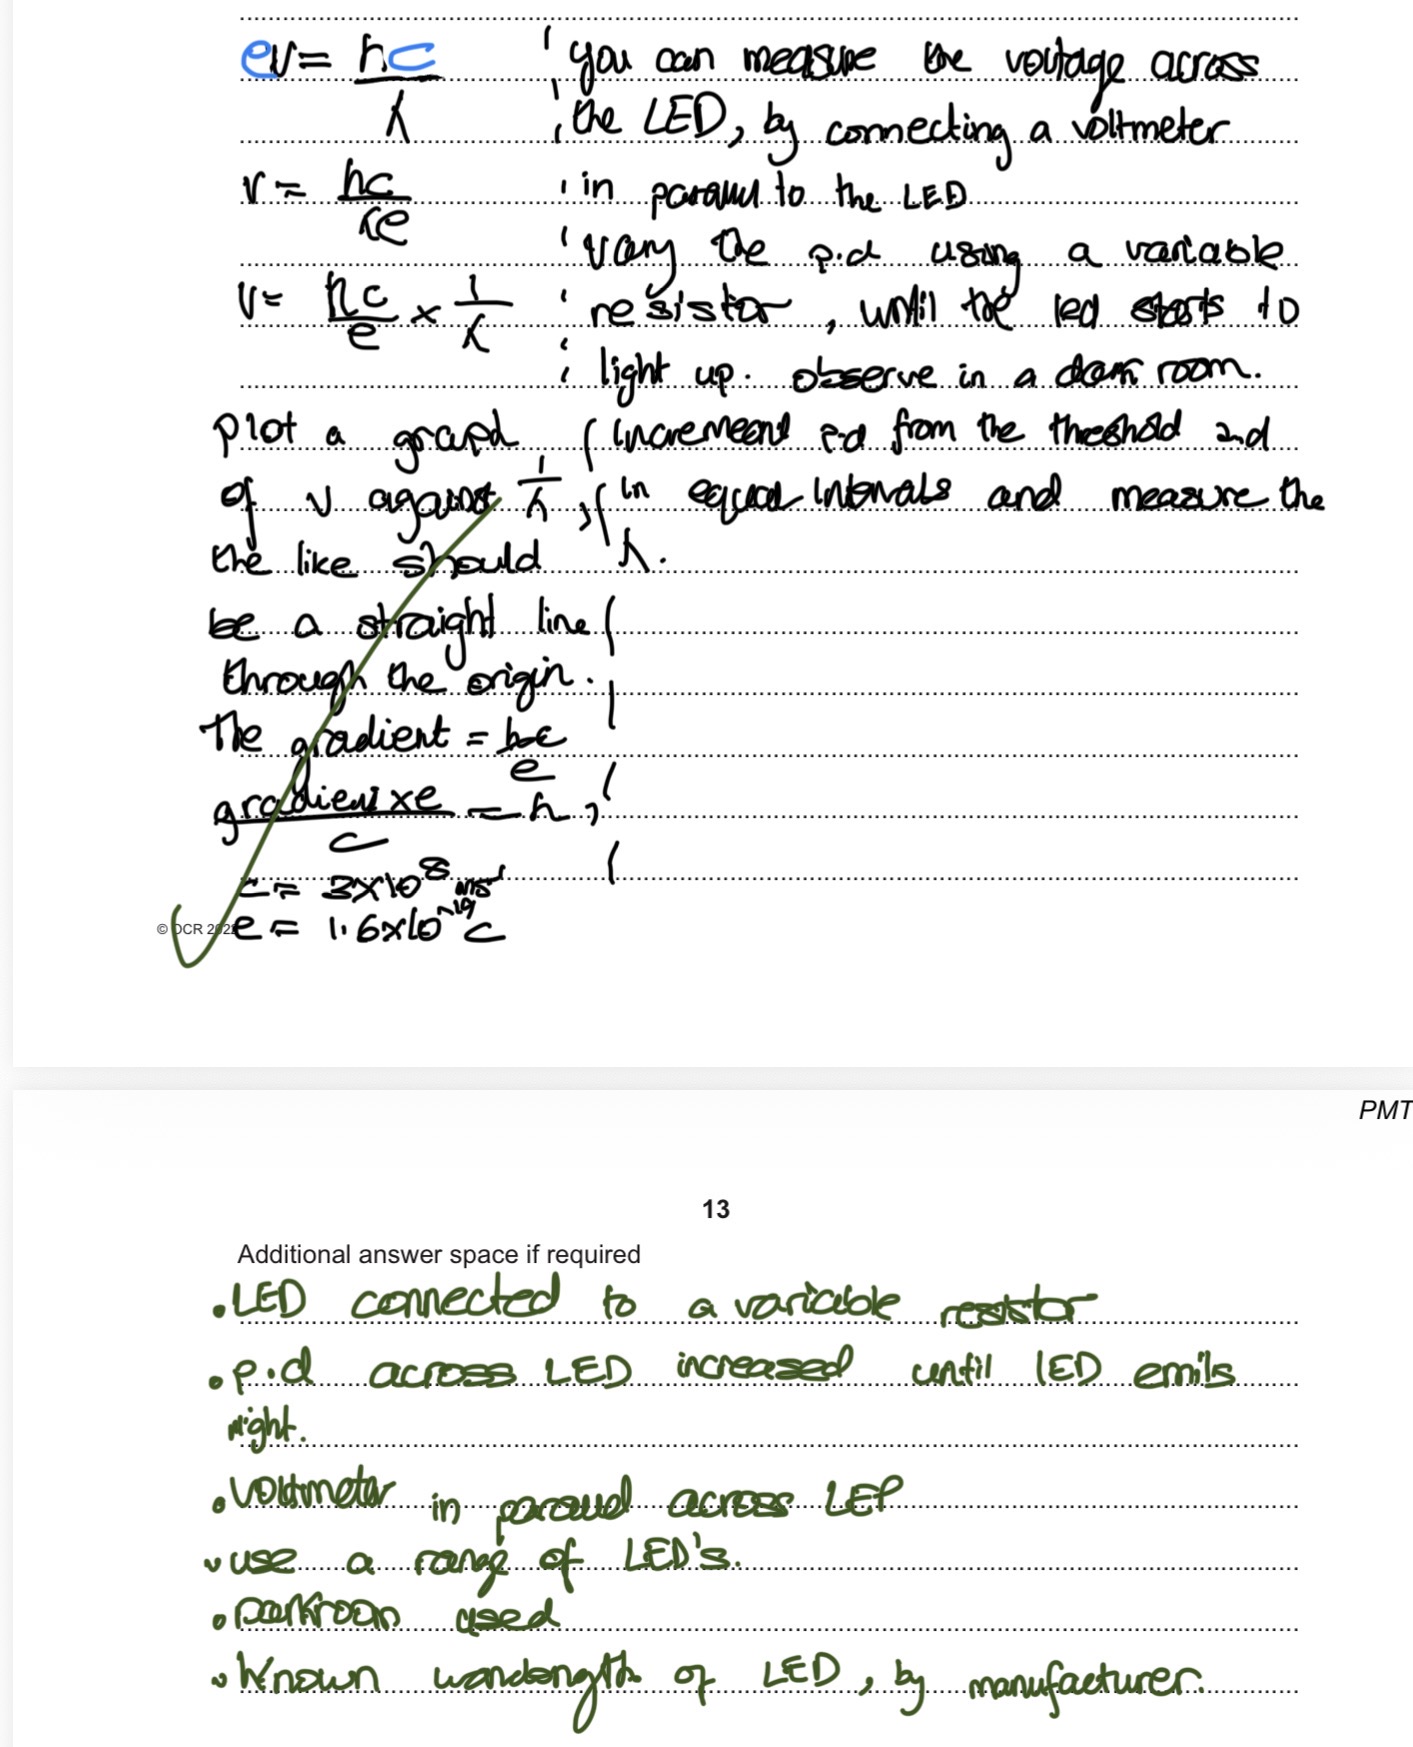 eV = hc / λ
you can measure the voltage across
the LED, by connecting a voltmeter
V = hc / λe
in parallel to the LED
vary the p.d using a variable
V = hc / e × 1 / λ
resistor, until the led starts to
light up. observe in a dark room.
plot a grapd
of V against 1 / λ,
the like should
be a straight line
through the origin.
The gradient = hc / e
gradient × e / c = h,
c = 3×10⁸ ms⁻¹
e = 1.6×10⁻¹⁹ C
increment p.d from the threshold and
in equal intervals and measure the
λ.
© OCR 2022
PMT
13
Additional answer space if required
• LED connected to a variable resistor
• p.d across LED increased until LED emits
light.
• voltmeter in parallel across LED
• use a range of LED's.
• Darkroom used
• Known wavelength of LED, by manufacturer.